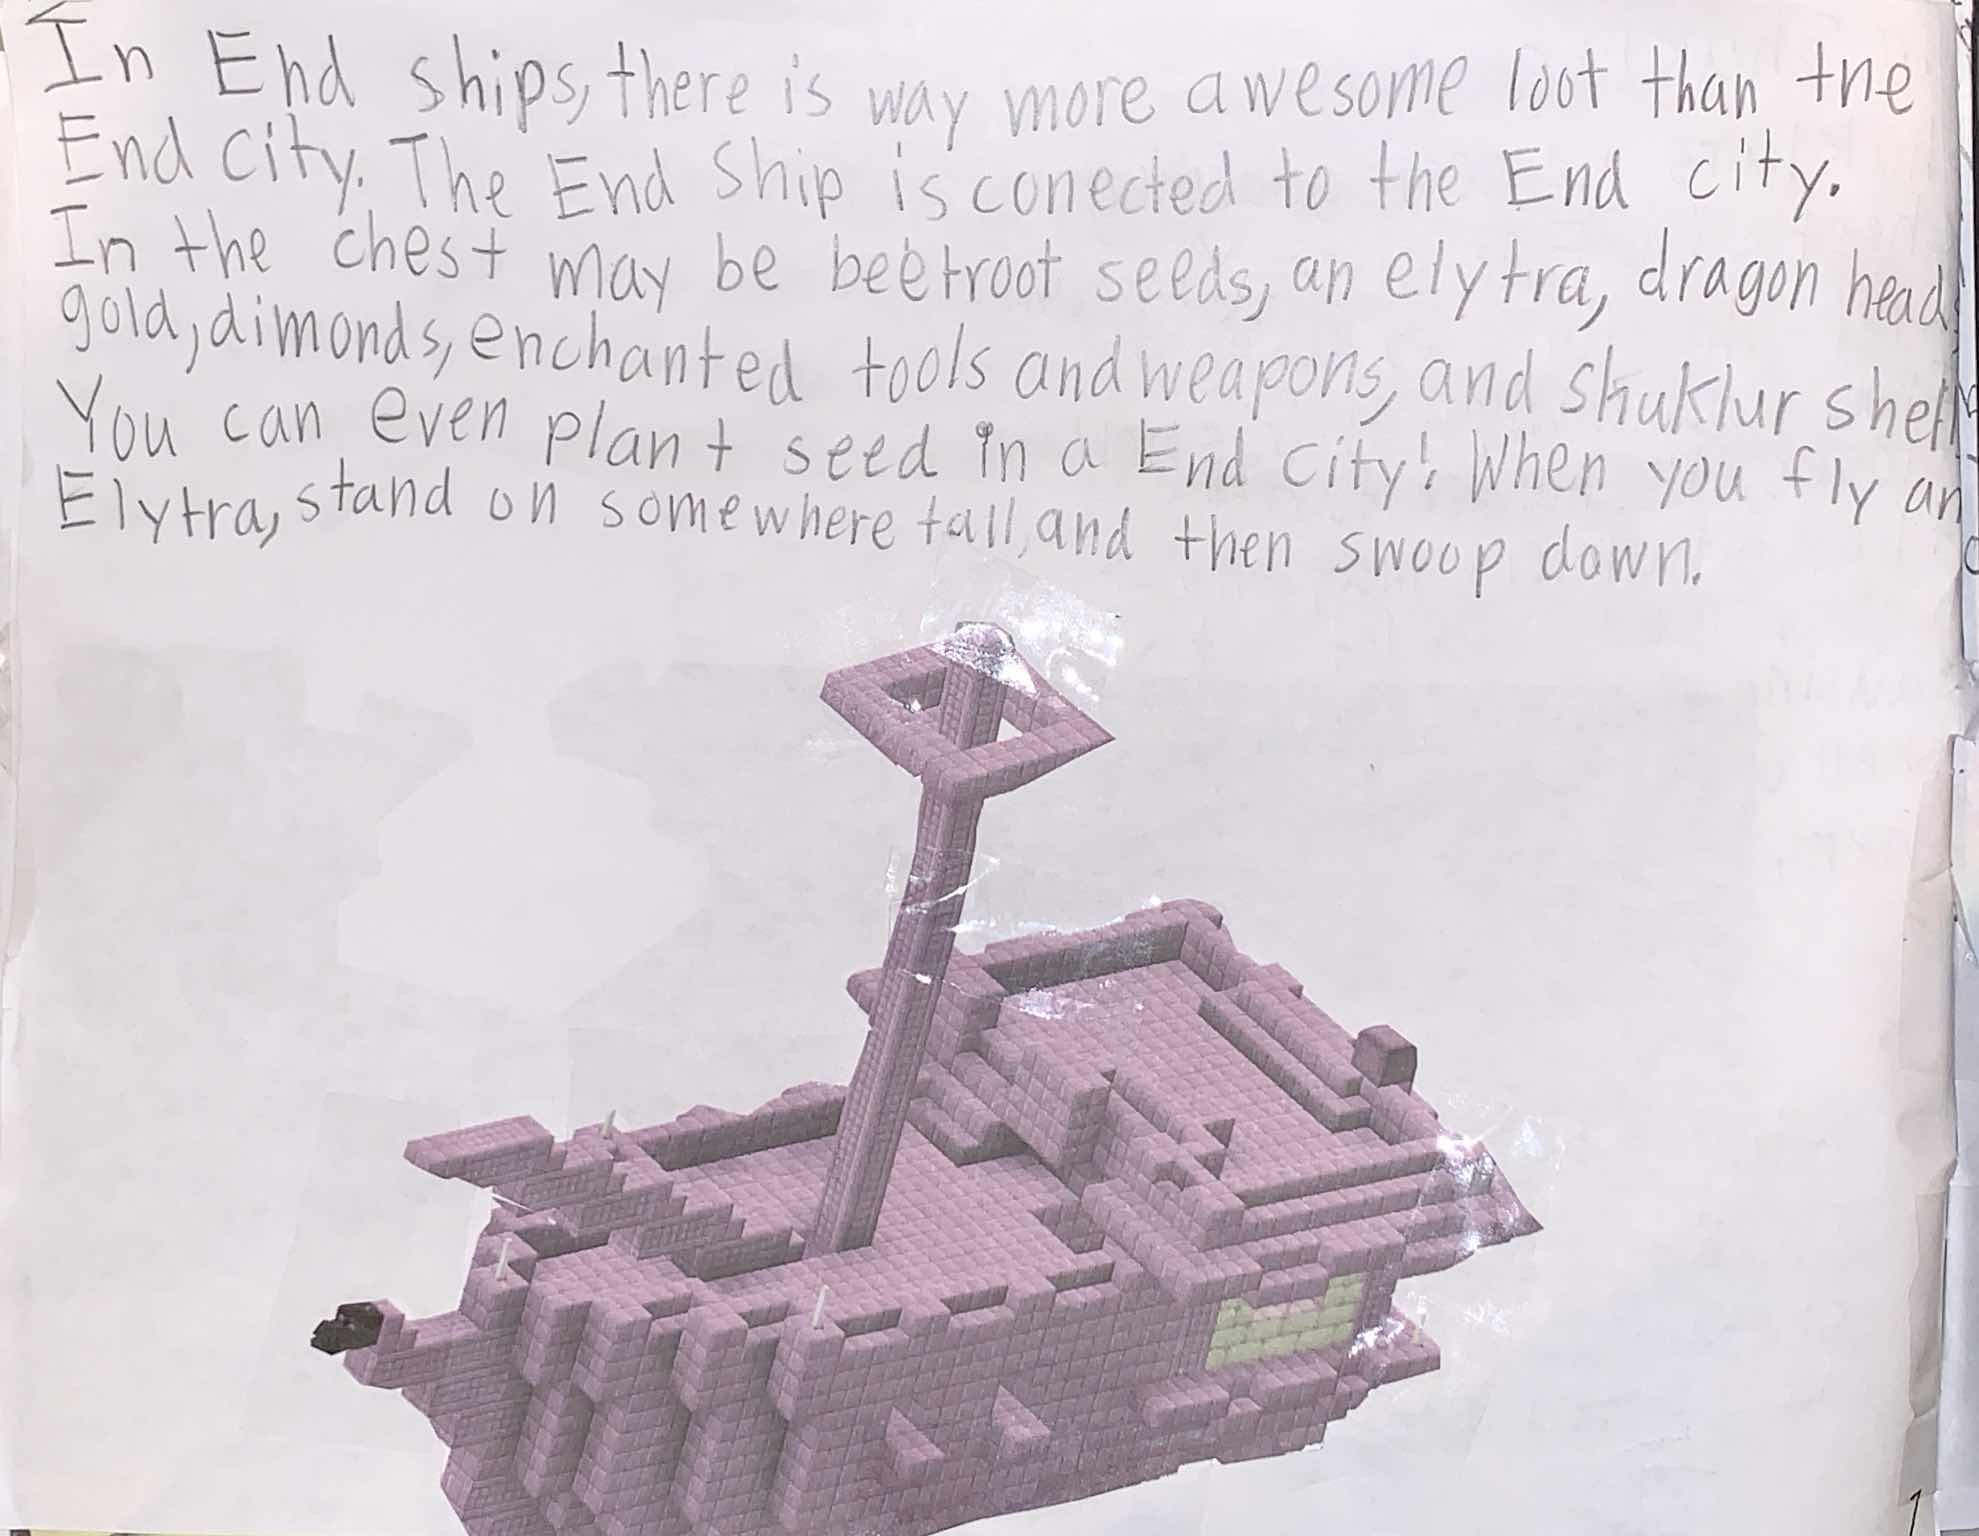 In End ships, there is way more awesome loot than the
End city. The End Ship is conected to the End city.
In the chest may be beetroot seeds, an elytra, dragon head,
gold, dimonds, enchanted tools and weapons, and shuklur shell
You can even plant seed in a End City! When you fly an
Elytra, stand on somewhere tall, and then swoop down.